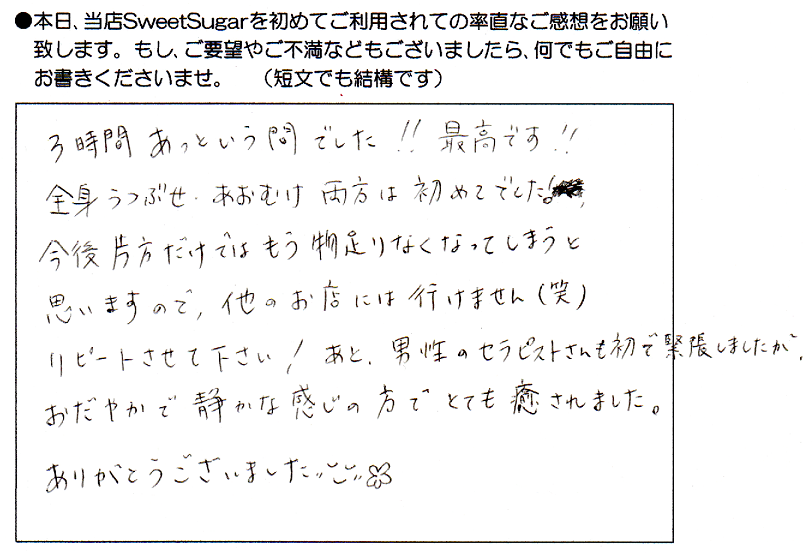 ●本日、当店SweetSugarを初めてご利用されての率直なご感想をお願い
致します。もし、ご要望やご不満などもございましたら、何でもご自由に
お書きくださいませ。 （短文でも結構です）
3時間 あっという間でした!! 最高です!!
全身うつぶせ・あおむけ 両方は初めてでした。
今後片方だけではもう物足りなくなってしまうと
思いますので、他のお店には行けません(笑)
リピートさせて下さい! あと、男性のセラピストさんも初で緊張しましたが、
おだやかで静かな感じの方でとても癒されました。
ありがとうございました